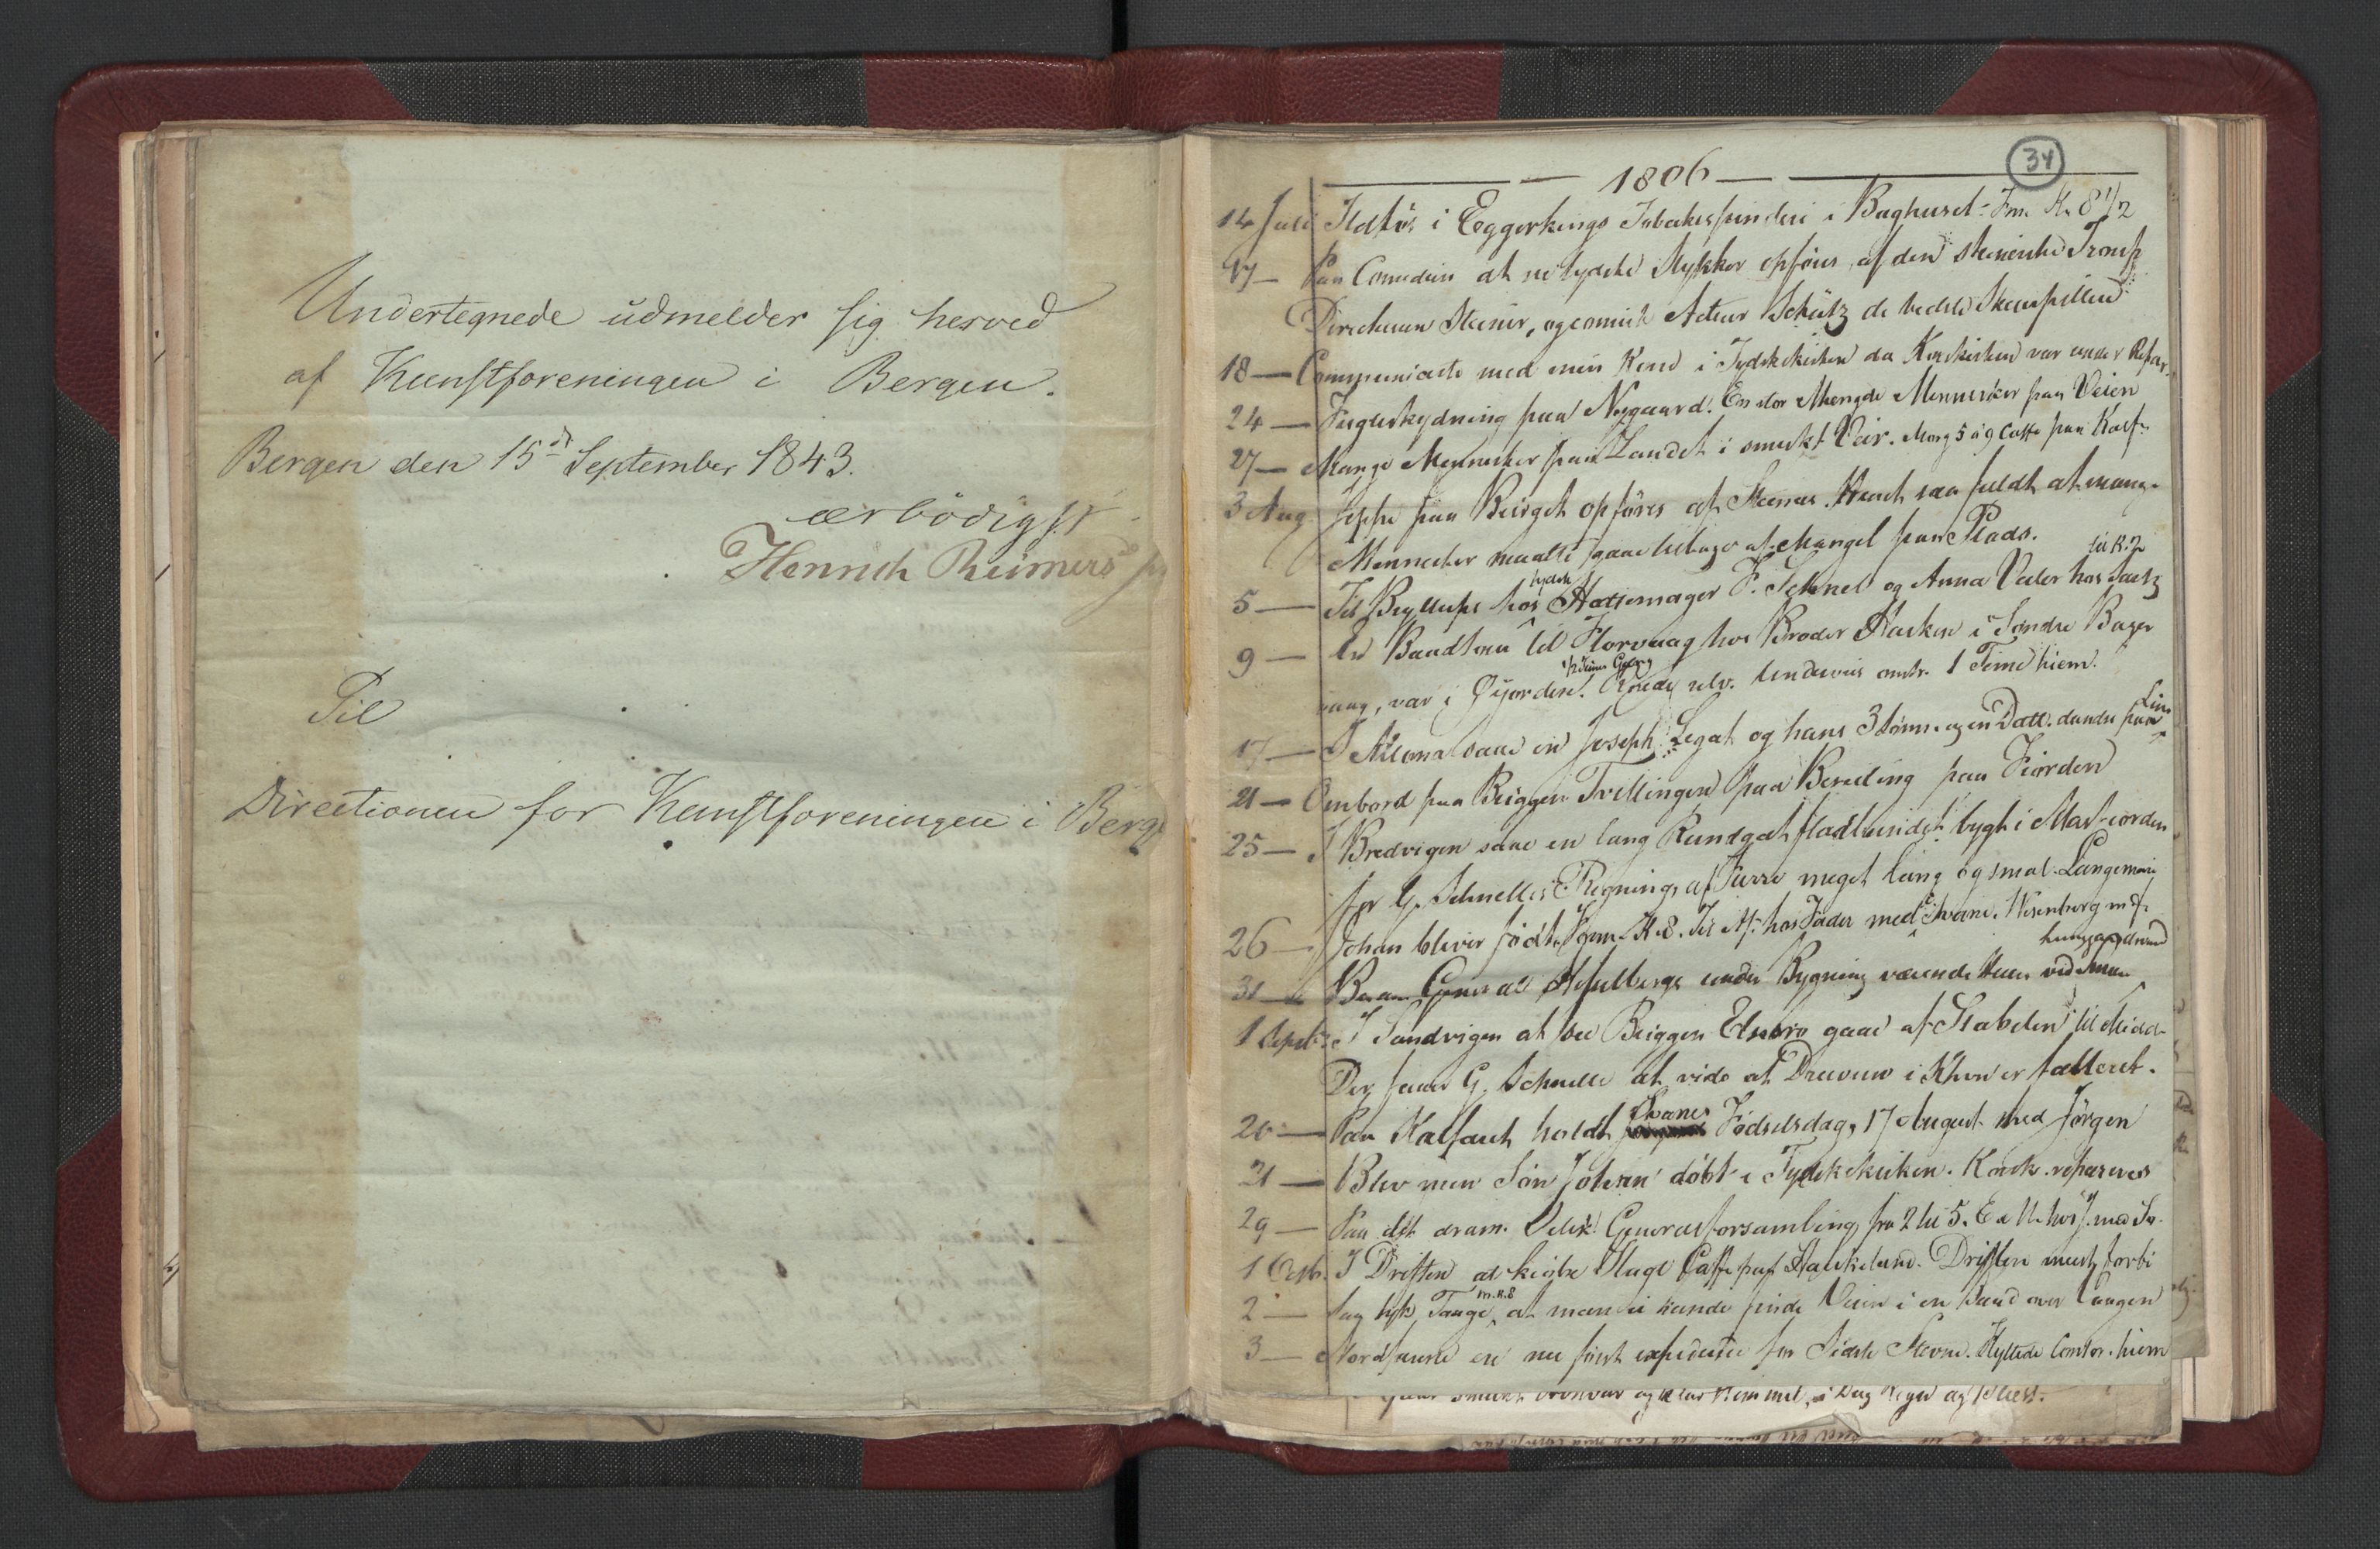 Undertegnede udmelder sig herved
af Kunstforeningen i Bergen.
Bergen den 15de September 1843.
ærbödigst
Henrich Reimers
Til
Directionen for Kunstforeningen i Berge
34
1806
14 Juli Ildlös i Eggerkings Tobakspinderi i Baghuset. Fm. Kl. 8 1/2
17 — Paa Comedien at see tydske Stykker opföres, af den Steinerske Troup
Directeuren Steiner, og comisk Acteur Schütz de bedste Skuespillere
18 — Communicerte med min Kone i Tydskekirken da Korskirken var under Repar.
24 — Fugleskydning paa Nygaard. En stor Mængde Mennesker paa Veien
27 — Mange Mennesker paa Landet i smukt Veir. Morg 5 à 9 Caffe paa Kalf.
3 Aug. Jeppe paa Bierget opföres af Steiner. Huset saa fuldt at mange
Mennesker maatte gaae tilbage af Mangel paa Plads. til Kl. 2
5 — Til Bryllups hos tydsk Hattemager F. Schnel og Anna Valer hos
9 — En Baadtour til Florvaag hos Broder Hasken i Söndre
vaag, var i Öyorden. Roede selv. underveis omtr. 1 Time hiem.
17 — I saae en Joseph Legat og hans 3 Sönner og en Datt. dandse paa Line
21 — Ombord paa Briggen Tvillingen paa Beseiling paa Fiorden
25 — I Bredvigen saae en lang Rundgat bygt i Masfiorden
for G. Schnelles Regning, af Furre meget lang og smal.
26 — Johan blever födt, Fm. Kl. 8. Til Af. hos Fader med Svane. Wesenberg m. fl.
31 — Besaae General Hesselbergs under Bygning værende Huus
1 Septbr. I Sandvigen at see Briggen Elnora gaae af Stabelen til Midd.
Der faaer G. Schnelle at vide at i Khvn er falleret.
20 — Paa Kalfaret holdt Svanes Födselsdag, 17 August med Jörgen
21 — Blev min Sön Johan döbt i Tydskekirken. Korsk. repareres
29 — Paa det dram. Selsk. Generalforsamling fra 2 til 5.
1 Octbr. I Driften at kiöbe Slagt Caffe paa Haukeland. Driften meest forbi
2 — Saa tyk Taage m. Kl. 8 at man ei kunde finde Veien i en Baad over Vaagen
3 — Nordfarene ere nu först expederede for Sidste Stevne. Flyttede Contor. hiem
og klar Himmel, i Dag Regn og Blæst.